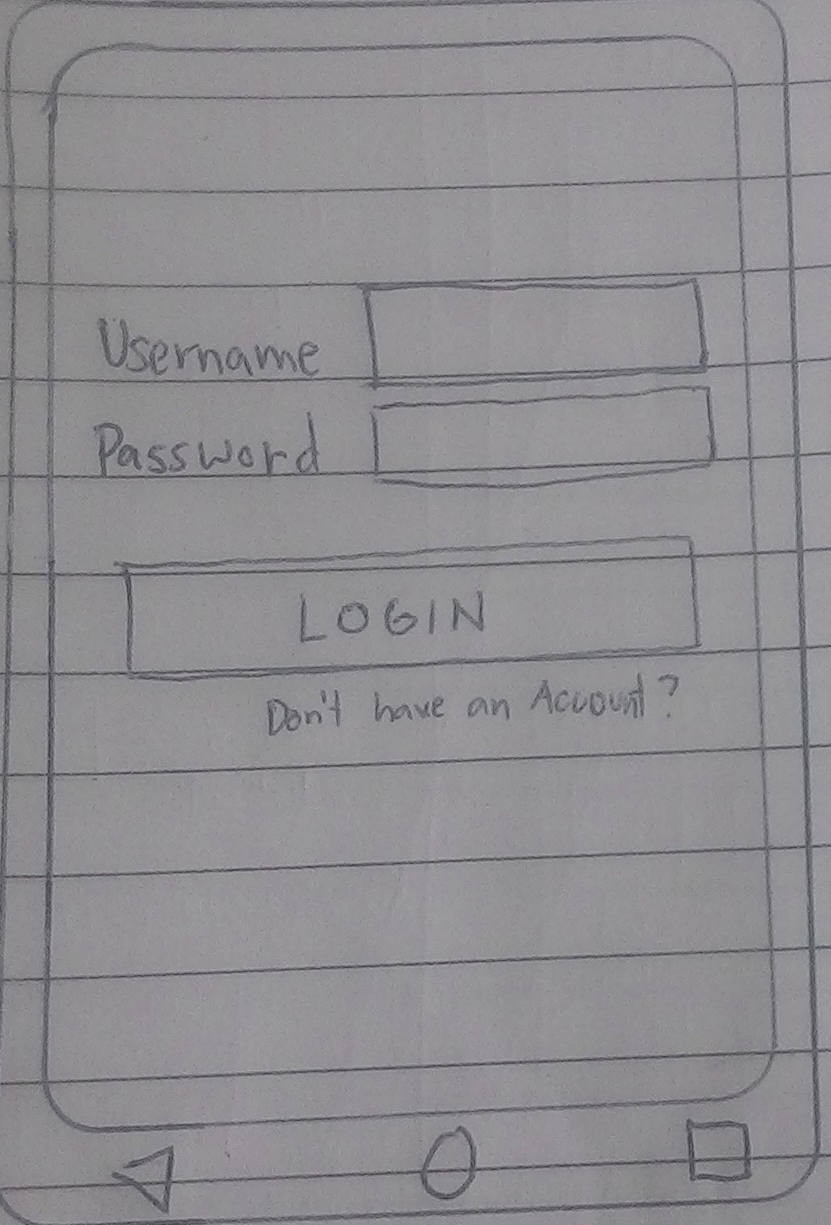 Username
Password
LOGIN
Don't have an Account?